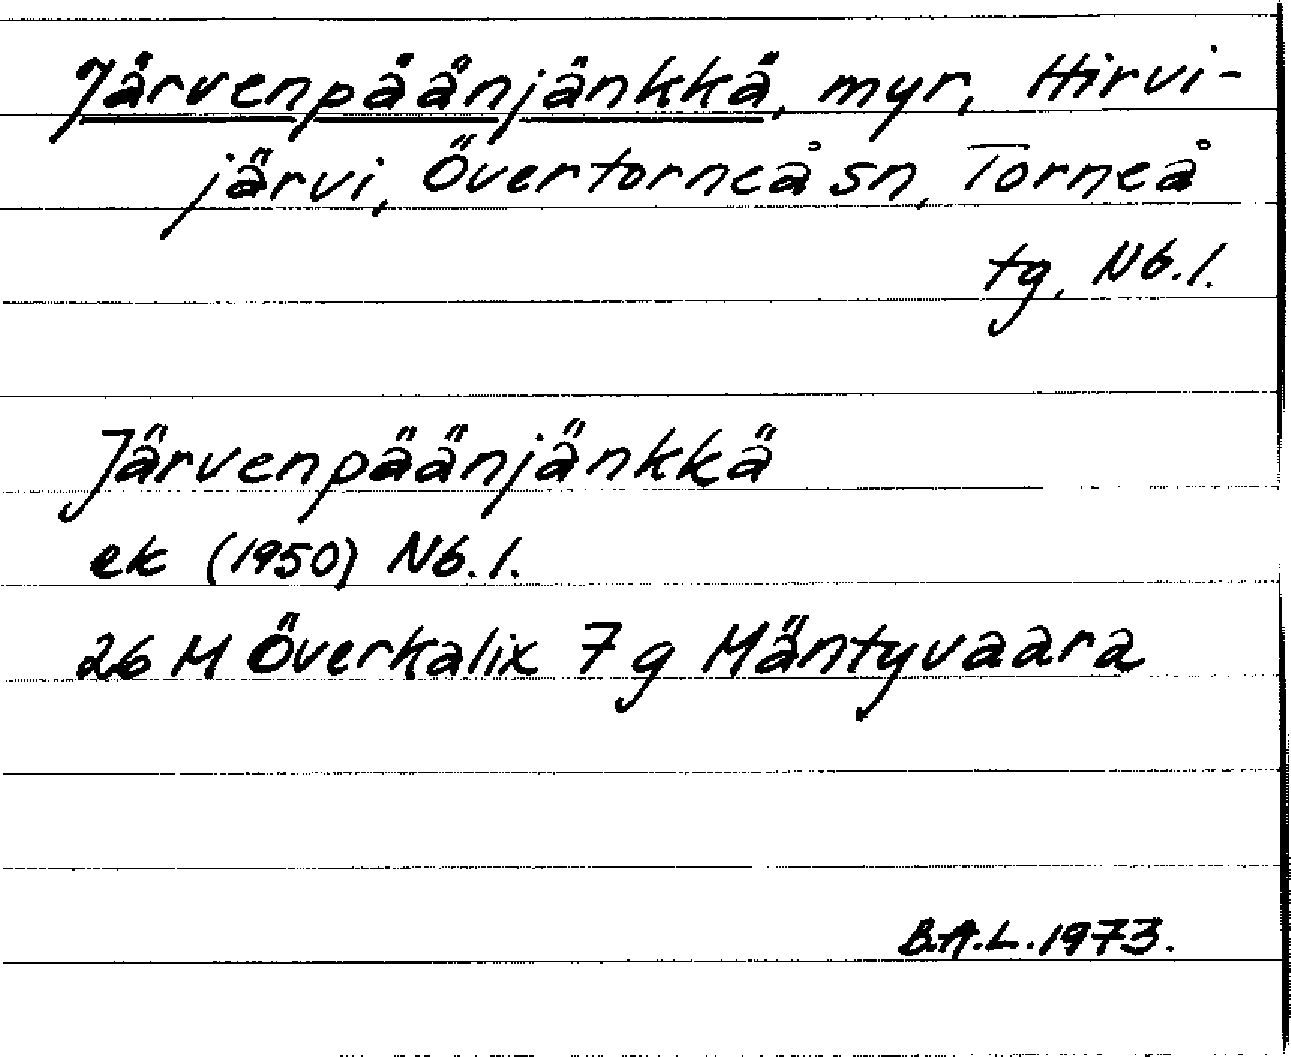 Järvenpäänjänkkä, myr, Hirvi-
järvi, Övertorneå sn, Torneå
tg, Nb.l.
Järvenpäänjänkkä
ek (1950) Nb.l.
26 M Överkalix 7 g Mäntyvaara
B.A.L. 1973.